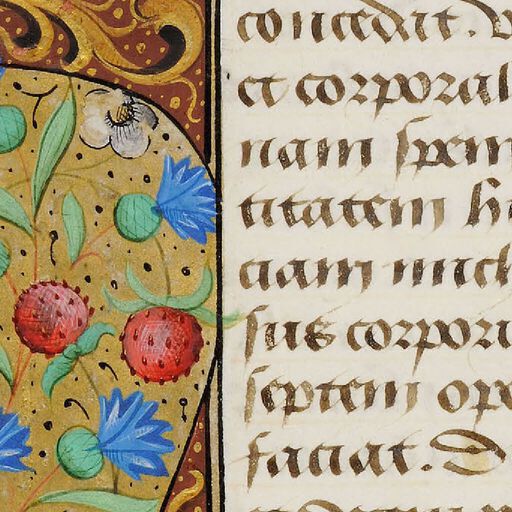 concedat. D
et corporal
nam spem
titatem hu
ciam mich
sus corporis
septem ope
faciat. D